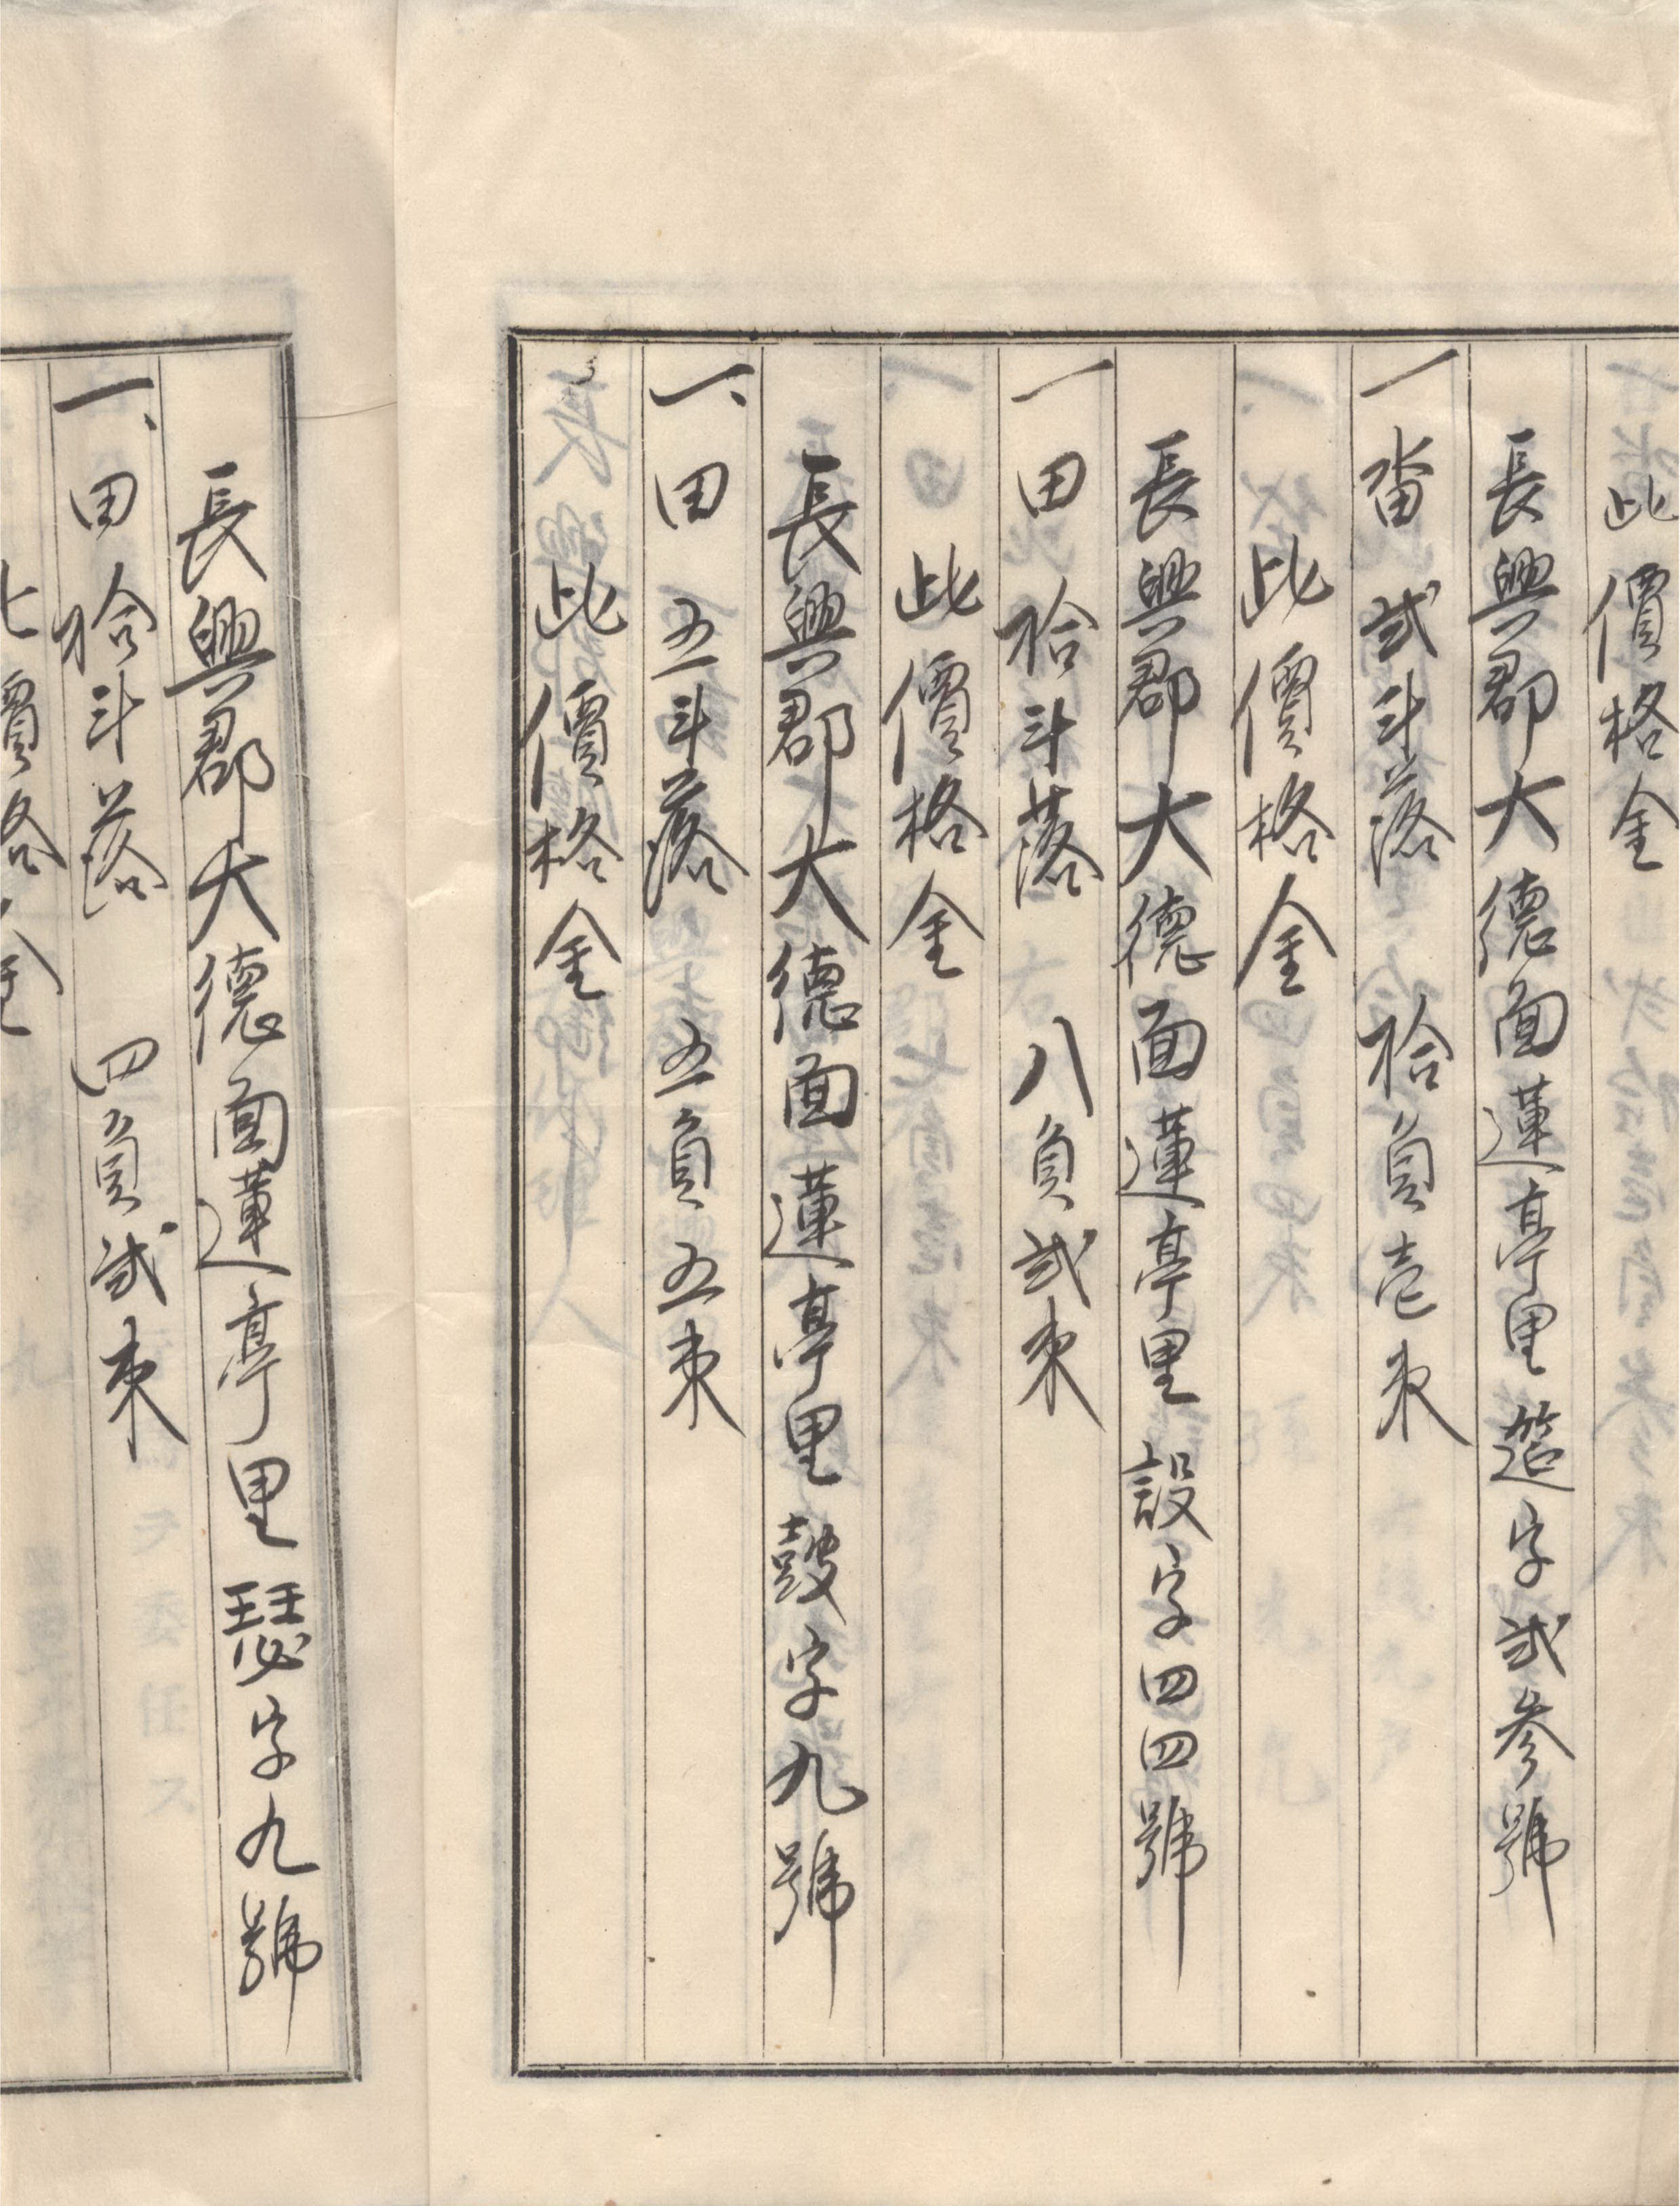 此價格金
長興郡大德面蓮亭里筵字弍參號
一 畓 弍斗落 拾負壱束
此價格金
長興郡大德面蓮亭里 設字四四號
一 田 拾斗落 八負弍束
此價格金
長興郡大德面蓮亭里 鼓字九號
一、田 五斗落 五負五束
此價格金
長興郡大德面蓮亭里 瑟字九號
一、田 拾斗落 四負弍束
此價格金